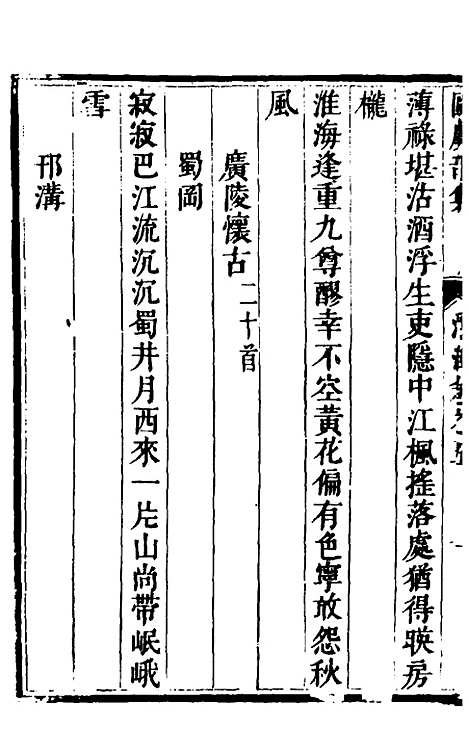 薄祿堪沽酒浮生吏隱中江楓搖落處猶得映房
櫳
淮海逢重九尊醪幸不空黃花偏有色寧放怨秋
風
廣陵懷古二十首
蜀岡
寂寂巴江流沉沉蜀井月西來一片山尚帶岷峨
雪
邗溝